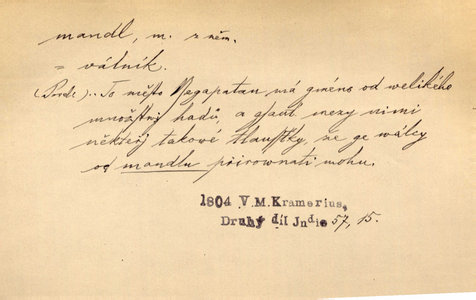 mandl, m. z něm.
= válník.
(Předl.).. To město Nagapatan má gméno od welikého
množstwj hadů, a gsau mezy nimi
někteřj takowé tlaustky, že ge wálcy
od mandlu přirownati mohu.
1804 V.M.Kramerius,
Druhý díl Jndie 57, 15.